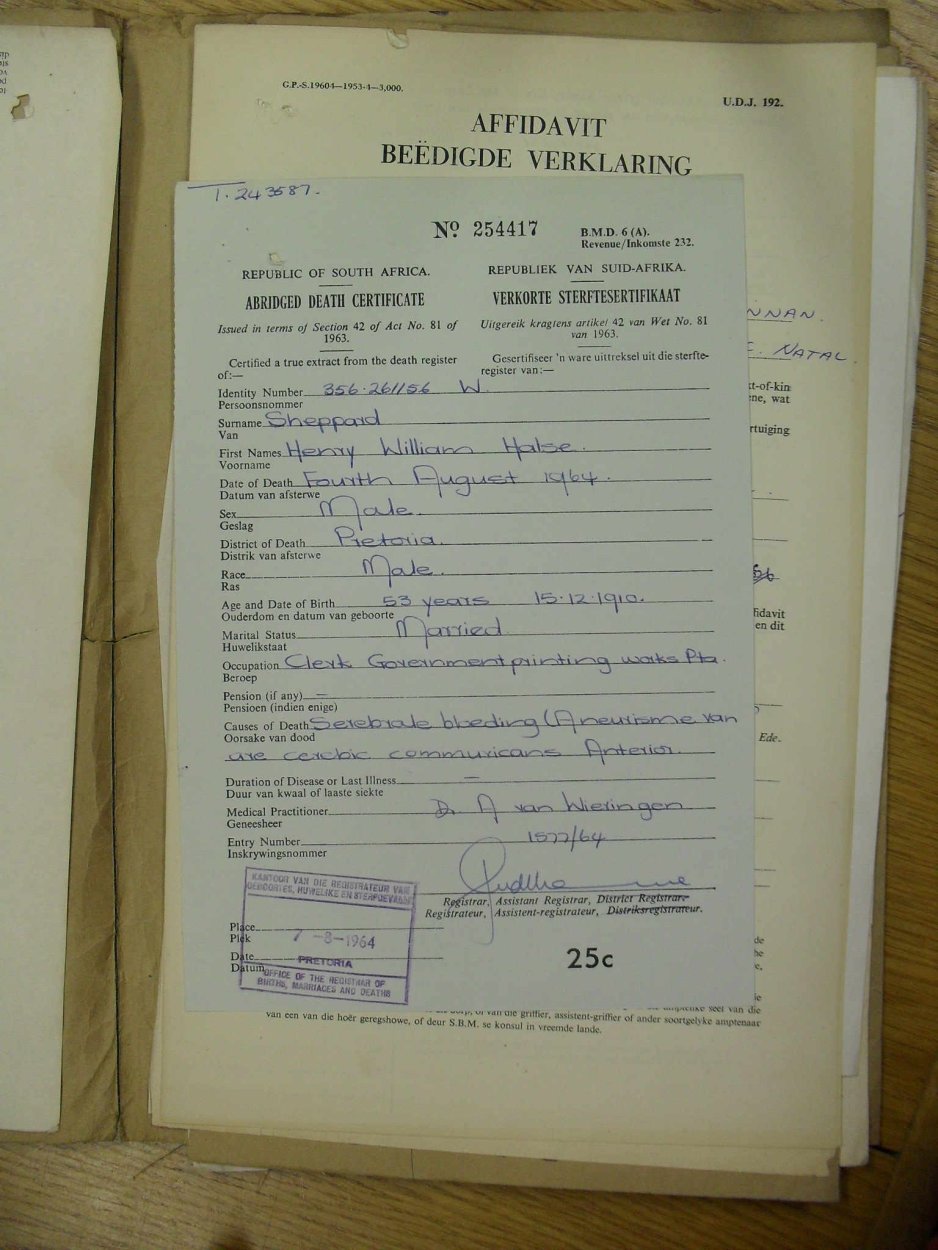 G.P.-S.19604—1953-4—3,000.
U.D.J. 192.
AFFIDAVIT
BEËDIGDE VERKLARING
T. 243587.
Nº 254417
B.M.D. 6 (A).
Revenue/Inkomste 232.
REPUBLIC OF SOUTH AFRICA.
REPUBLIEK VAN SUID-AFRIKA.
ABRIDGED DEATH CERTIFICATE
VERKORTE STERFTESERTIFIKAAT
Issued in terms of Section 42 of Act No. 81 of
1963.
Uitgereik kragtens artikel 42 van Wet No. 81
van 1963.
Certified a true extract from the death register
of:—
Gesertifiseer 'n ware uittreksel uit die sterfte-
register van:—
Identity Number 356·261156 W.
Persoonsnommer
Surname Sheppard
Van
First Names Henry William Halse.
Voorname
Date of Death Fourth August 1964.
Datum van afsterwe
Sex Male.
Geslag
District of Death Pretoria.
Distrik van afsterwe
Race Male.
Ras
Age and Date of Birth 53 years 15·12·1910.
Ouderdom en datum van geboorte
Marital Status Married
Huwelikstaat
Occupation Clerk Government printing works Pta.
Beroep
Pension (if any) —
Pensioen (indien enige)
Causes of Death Serebrale bloeding (Aneurisme van
Oorsake van dood
communicans Anterior.
Duration of Disease or Last Illness —
Duur van kwaal of laaste siekte
Medical Practitioner Dr A van Wieringen
Geneesheer
Entry Number 1577/64
Inskrywingsnommer
Registrar, Assistant Registrar, District Registrar.
Registrateur, Assistent-registrateur, Distriksregistrateur.
Place
Plek
Date
Datum
KANTOOR VAN DIE REGISTRATEUR VAN
GEBOORTES, HUWELIKE EN STERFGEVALLE
7 -8-1964
PRETORIA
OFFICE OF THE REGISTRAR OF
BIRTHS, MARRIAGES AND DEATHS
25c
NNAN.
NATAL
t-of-kin
ne, wat
rtuiging
fidavit
en dit
Ede.
de
he
ie
van die griffier, assistent-griffier of ander soortgelyke amptenaar
seel van die
van een van die hoër geregshowe, of deur S.B.M. se konsul in vreemde lande.